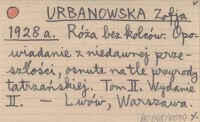 URBANOWSKA Zofja
1928 a. Róża bez kolców. Opo-
wiadanie z niedawnej prze-
szłości, osnute na tle przyrody
tatrzańskiej. Tom II. Wydanie
II. — Lwów, Warszawa.